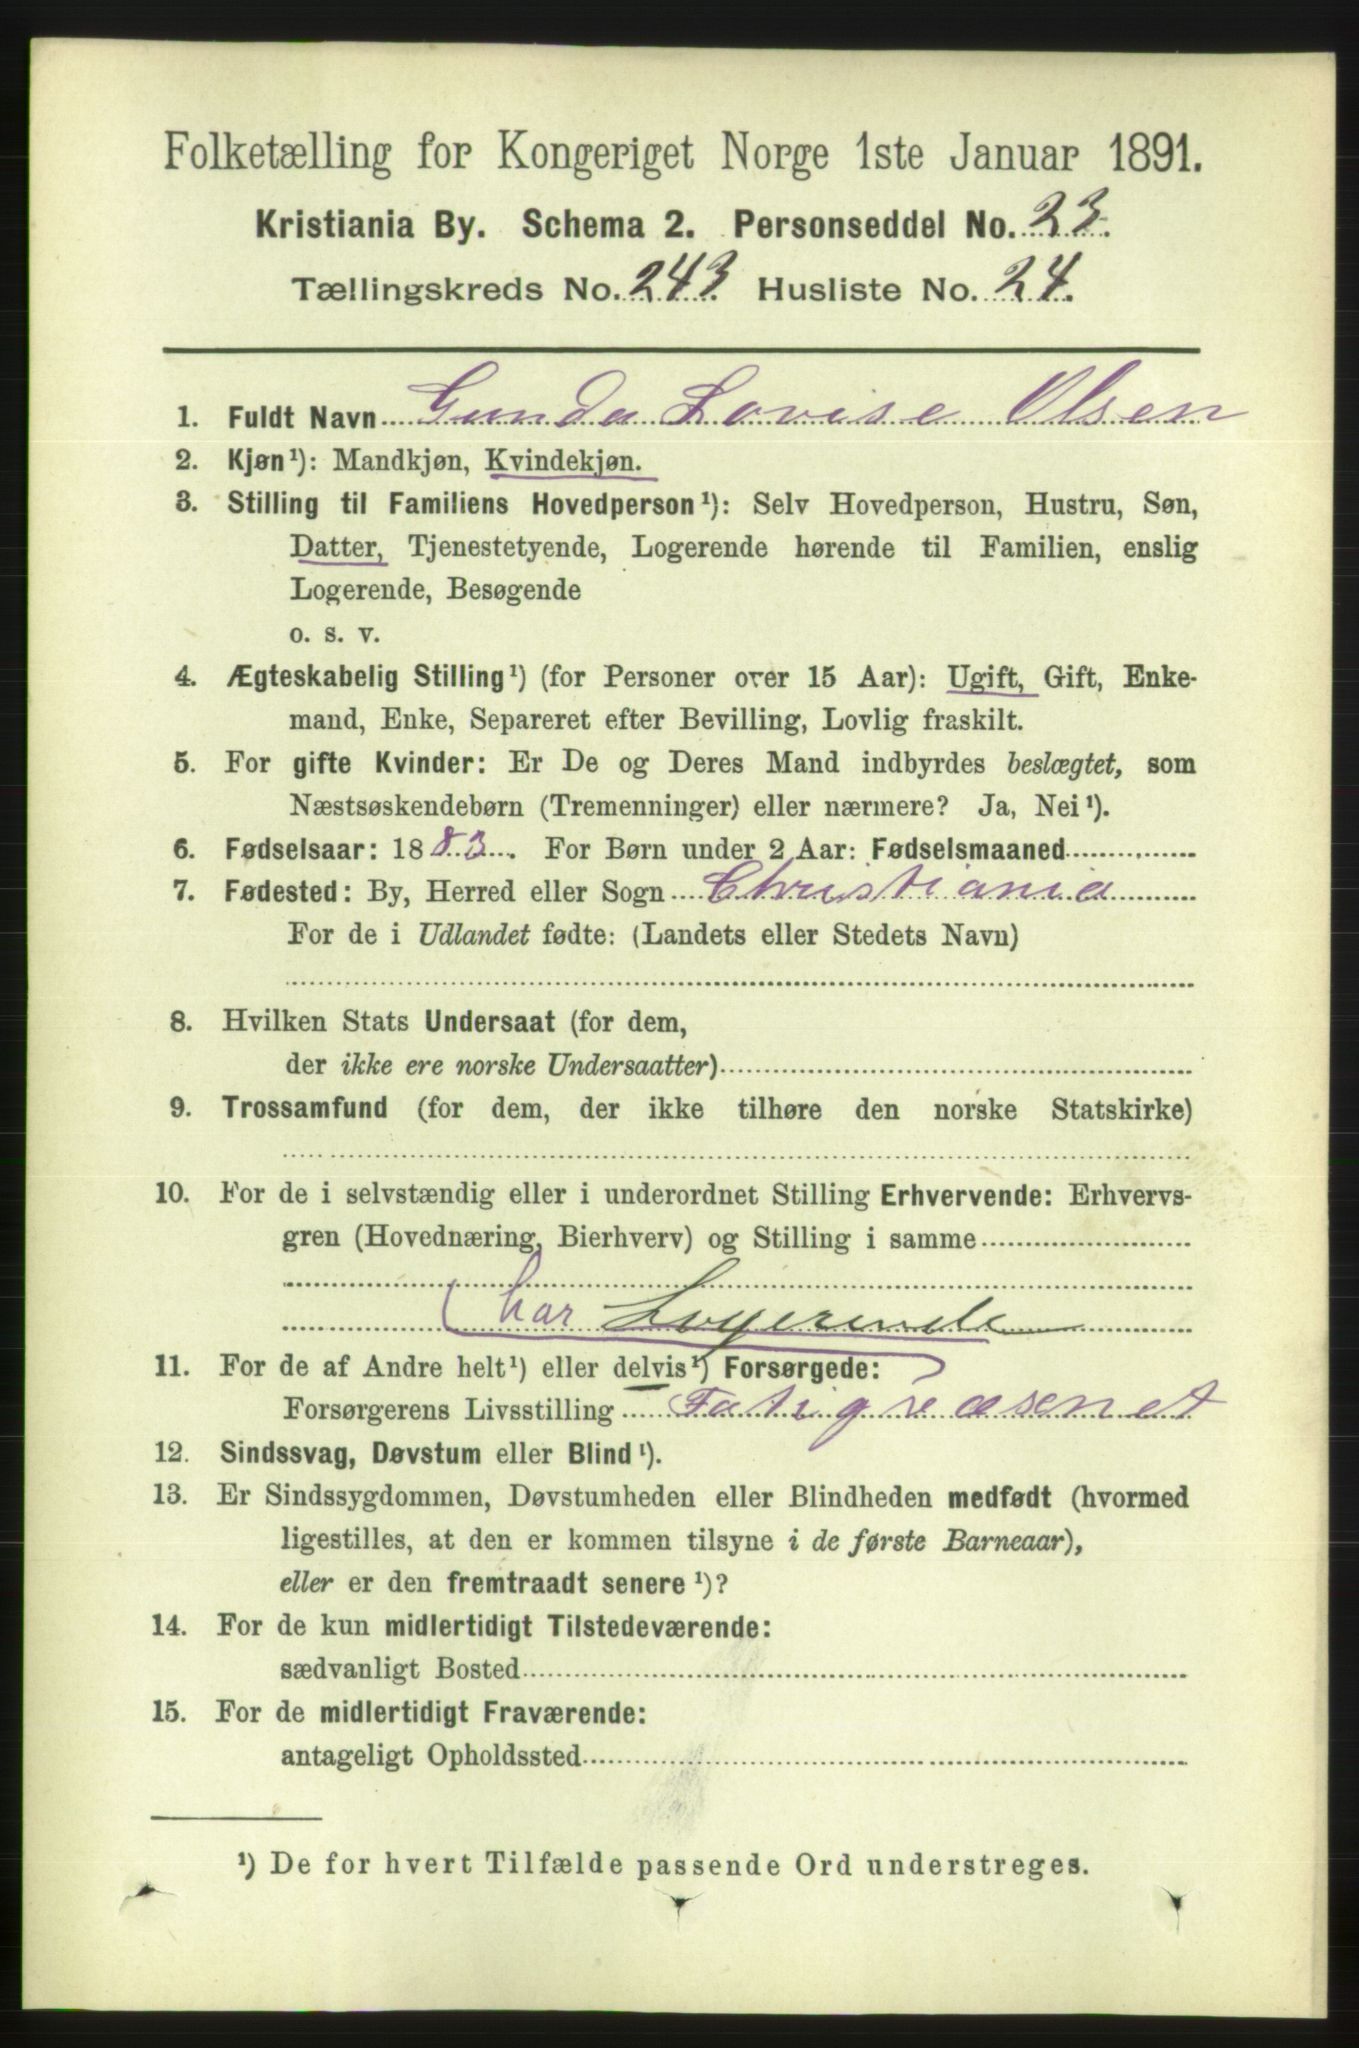 Folketælling for Kongeriget Norge 1ste Januar 1891.
Kristiania By. Schema 2. Personseddel No. 23.
Tællingskreds No. 243. Husliste No. 24.
1. Fuldt Navn Gunda Lovise Olsen
2. Kjøn¹): Mandkjøn, Kvindekjøn.
3. Stilling til Familiens Hovedperson¹): Selv Hovedperson, Hustru, Søn,
Datter, Tjenestetyende, Logerende hørende til Familien, enslig
Logerende, Besøgende
o. s. v.
4. Ægteskabelig Stilling¹) (for Personer over 15 Aar): Ugift, Gift, Enke-
mand, Enke, Separeret efter Bevilling, Lovlig fraskilt.
5. For gifte Kvinder: Er De og Deres Mand indbyrdes beslægtet, som
Næstsøskendebørn (Tremenninger) eller nærmere? Ja, Nei¹).
6. Fødselsaar: 1883. For Børn under 2 Aar: Fødselsmaaned
7. Fødested: By, Herred eller Sogn Christiania
For de i Udlandet fødte: (Landets eller Stedets Navn)
8. Hvilken Stats Undersaat (for dem,
der ikke ere norske Undersaatter)
9. Trossamfund (for dem, der ikke tilhøre den norske Statskirke)
10. For de i selvstændig eller i underordnet Stilling Erhvervende: Erhvervs-
gren (Hovednæring, Bierhverv) og Stilling i samme
(har Logerende
11. For de af Andre helt¹) eller delvis¹) Forsørgede:
Forsørgerens Livsstilling Fatigvæsenet
12. Sindssvag, Døvstum eller Blind¹).
13. Er Sindssygdommen, Døvstumheden eller Blindheden medfødt (hvormed
ligestilles, at den er kommen tilsyne i de første Barneaar),
eller er den fremtraadt senere¹)?
14. For de kun midlertidigt Tilstedeværende:
sædvanligt Bosted
15. For de midlertidigt Fraværende:
antageligt Opholdssted
¹) De for hvert Tilfælde passende Ord understreges.